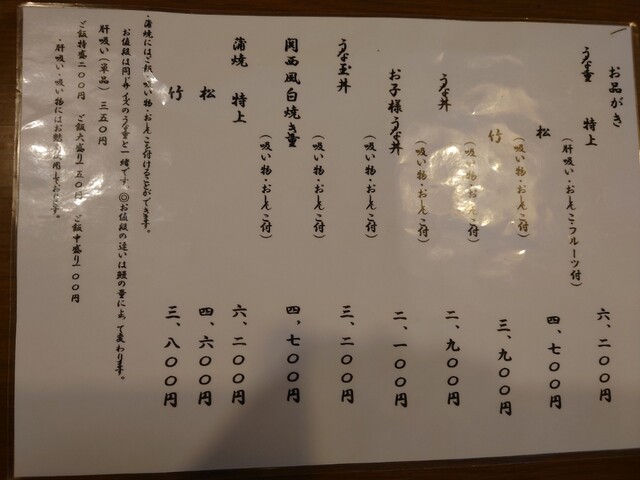 お品がき
うな重 特上
(肝吸い・おしんこ・フルーツ付)
六、二〇〇円
松
(吸い物・おしんこ付)
四、七〇〇円
竹
(吸い物・おしんこ付)
三、九〇〇円
うな丼
(吸い物・おしんこ付)
二、九〇〇円
お子様うな丼
(吸い物・おしんこ付)
二、一〇〇円
うな玉丼
(吸い物・おしんこ付)
三、二〇〇円
関西風白焼き重
(吸い物・おしんこ付)
四、七〇〇円
蒲焼 特上
六、二〇〇円
松
四、六〇〇円
竹
三、八〇〇円
・蒲焼にはご飯・吸い物・おしんこも付けることができます。
お値段は同じサイズのうな重と一緒です。◎お値段の違いは鰻の量によって変わります。
肝吸い(単品) 三五〇円
ご飯特盛二〇〇円 ご飯大盛り一五〇円 ご飯中盛り一〇〇円
・肝吸い・吸い物にはお麩を使用しております。